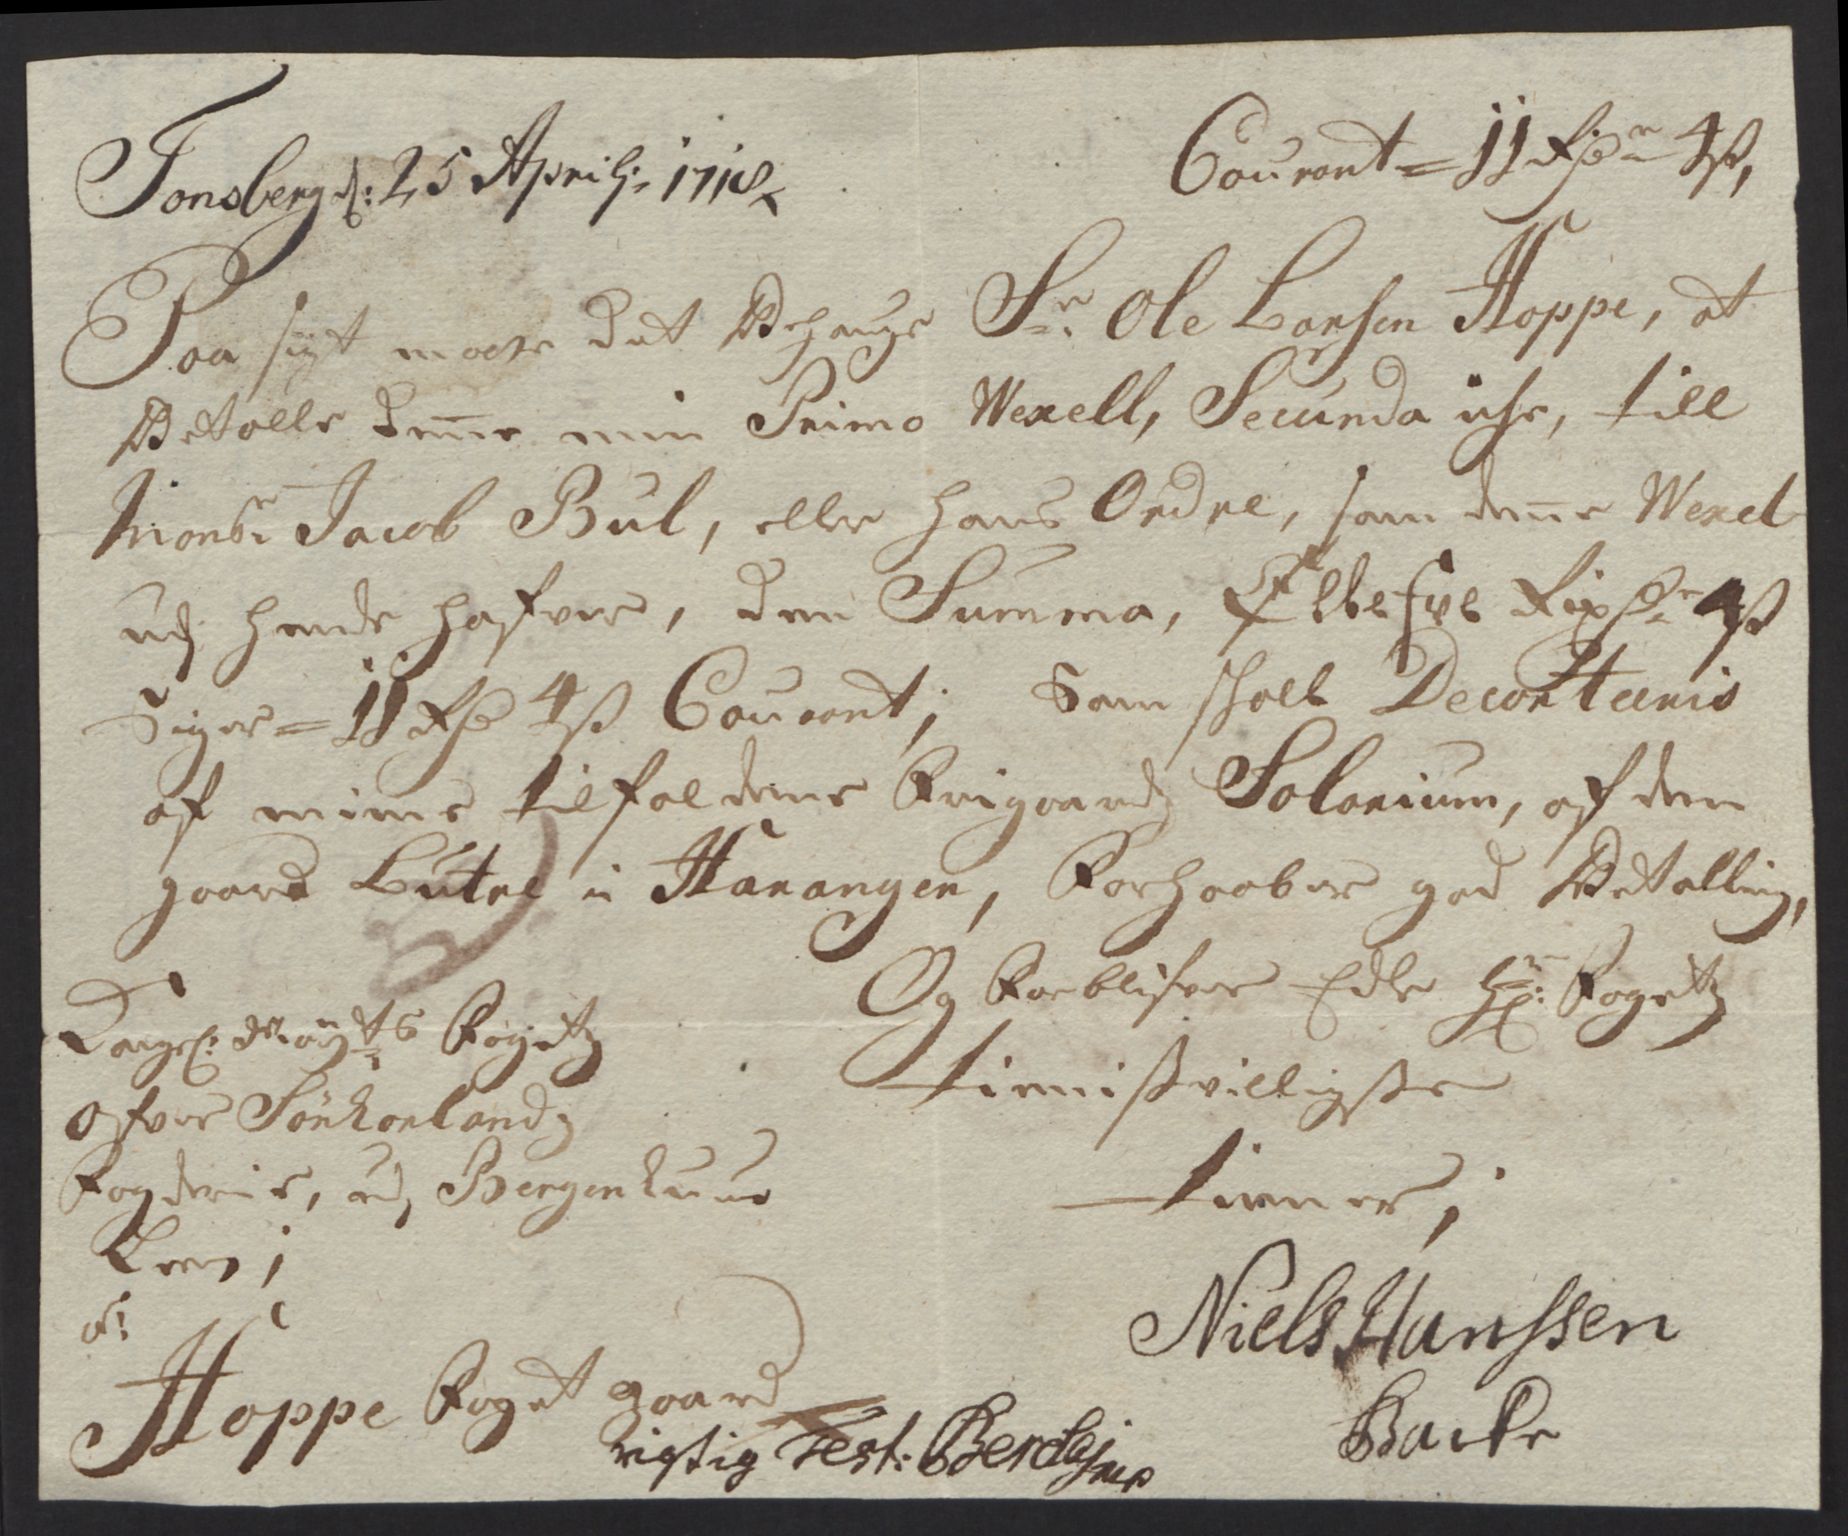 Tonsberg d: 25 Aprili: 1718
Courant = 11 Rdr 4 ß,
Paa sigt ware det Behauge Sr. Ole Larsen Hoppe, at
Betalle denne min Primo Wexell, Secunda iche, till
Monsr. Jacob Bul, eller hans Ordre, som denne Wexel
udj hende hafver, den Summa, Ellefve Rixdr 4 ß
Siger = 11 Rdr 4 ß Courant; som schall Decorteris
af mine tilfaldene Frigaardz Solarium, af den
gaard Lutre i Harangen, Forhaaber god Betalling,
Og Forblifver Edle Hr: Fogetz
tienistvilligste
tienner;
Niels Hanssen
Backe
Kongel: Mayts Fogitz
ofver Sönhorlandz
Fogderie, udj Bergenhuus
Leen;
a:
Hoppe Foget gaard
rigtig Test: